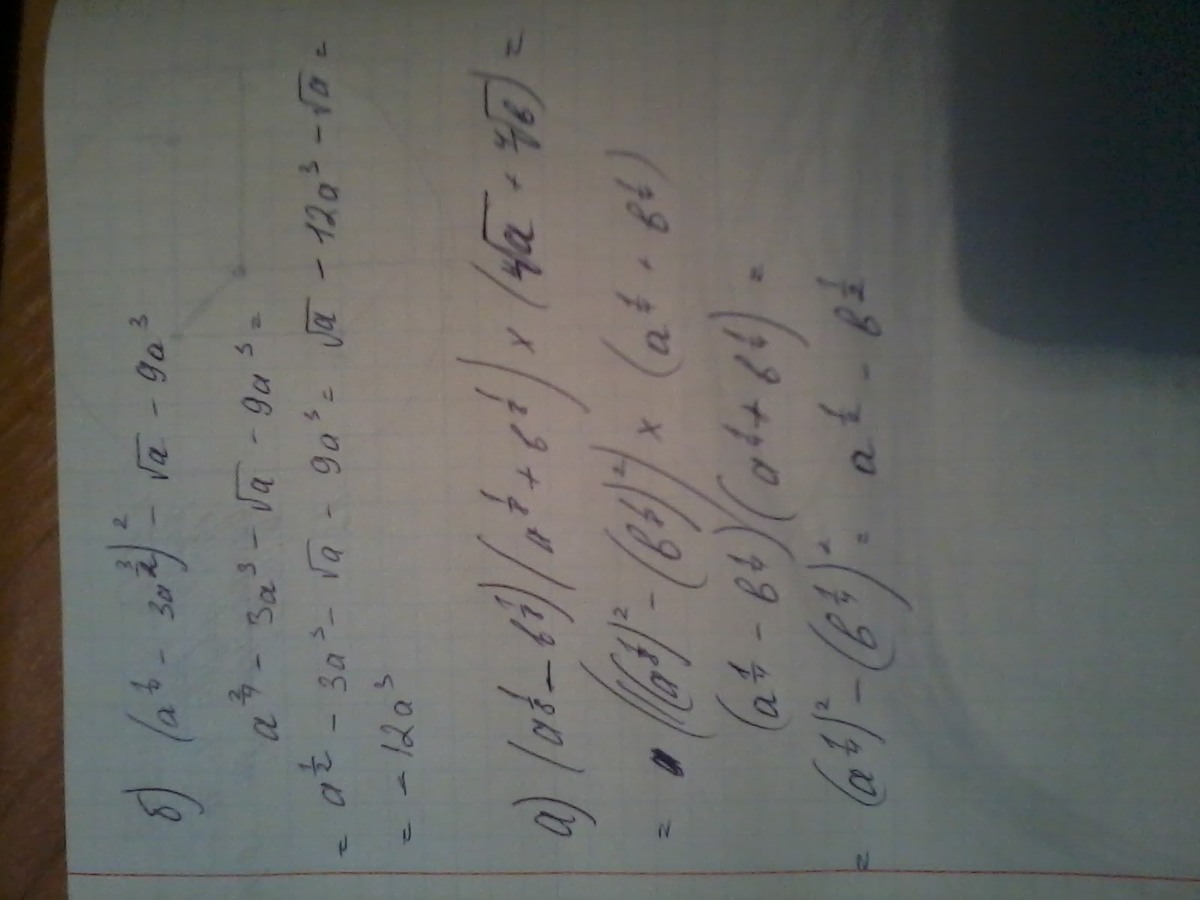 б) (a^{1/4} - 3a^{3/2})^2 - √a - 9a^3
a^{2/4} - 3a^3 - √a - 9a^3 =
= a^{1/2} - 3a^3 - √a - 9a^3 = √a - 12a^3 - √a =
= - 12a^3
а) (a^{1/8} - b^{1/8})(a^{1/8} + b^{1/8}) × (∜a + ∜b) =
= (((a^{1/8})^2 - (b^{1/8})^2) × (a^{1/4} + b^{1/4})
(a^{1/4} - b^{1/4})(a^{1/4} + b^{1/4}) =
= (a^{1/4})^2 - (b^{1/4})^2 = a^{1/2} - b^{1/2}